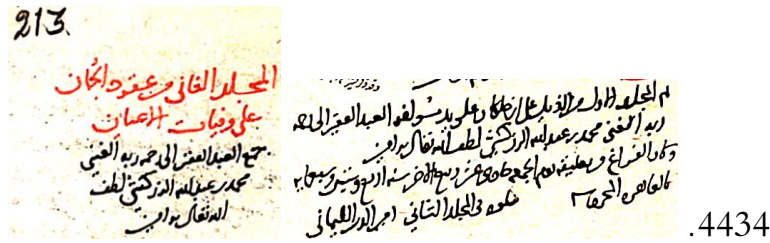 213.
المجلد الثاني من عقود الجمان
على وفيات الاعيان
جمع العبد الفقير الى رحمه ربه الغني
محمد بن عبد الله الزركشي لطف
الله تعالى به امين
المجلد الاول من على ابن خلكان على يد العبد الفقير الى رحمه
ربه الغني محمد بن عبد الله الزركشي لطف الله تعالى به امين
وكان الفراغ من تعليقه يوم الجمعه حادى عشر ربيع الاخر سنه اربع وستين وسبعمايه
بالقاهره المحروسه
يتلوه في المجلد الثاني امين الدين السليماني
.4434